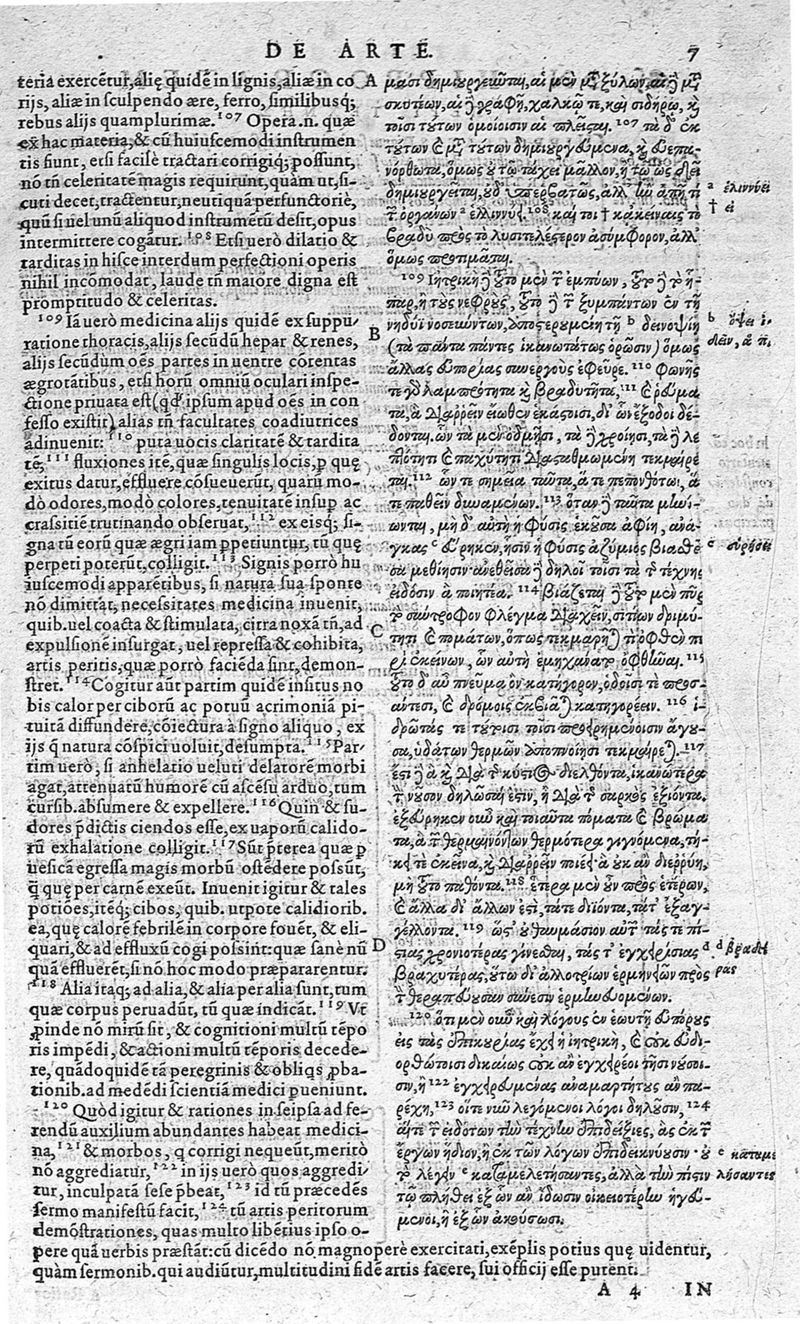 DE ARTE. 7
teria exercẽtur, alię quidẽ in lignis, aliæ in co
rijs, aliæ in sculpendo ære, ferro, similibusq;
rebus alijs quamplurimæ. 107 Opera .n. quæ
ex hac materia, & cũ huiuscemodi instrumen
tis fiunt, etsi facilè tractari corrigiq; possunt,
nõ tñ celeritatẽ magis requirunt, quàm ut, si-
cuti decet, tractentur, neutiquã perfunctoriè,
quũ si uel unũ aliquod instrumẽtũ desit, opus
intermittere cogãtur. 108 Etsi uerò dilatio &
tarditas in hisce interdum perfectioni operis
nihil incõmodat, laude tñ maiore digna est
promptitudo & celeritas.
109 Iã uerò medicina alijs quidẽ ex suppu-
ratione thoracis, alijs secũdũ hepar & renes,
alijs secũdum oẽs partes in uentre cõtentas
ægrotãtibus, etsi horũ omniũ oculari inspe-
ctione priuata est (qd' ipsum apud oẽs in con
fesso existit) alias tñ facultates coadiutrices
adinuenit: 110 puta uocis claritatẽ & tardita
tẽ, 111 fluxiones itẽ, quæ singulis locis, p̃ quę
exitus datur, effluere cõsueuerũt, quarũ mo-
dò odores, modò colores, tenuitatẽ insup ac
crassitiẽ trutinando obseruat, 112 ex eisq; si-
gna tũ eorũ quæ ægri iam ppetiuntur, tũ quę
perpeti poterũt, colligit. 113 Signis porrò hu
iuscemodi apparẽtibus, si natura sua sponte
nõ dimittãt, necessitates medicina inuenit,
quib. uel coacta & stimulata, citra noxã tñ, ad
expulsionẽ insurgat, uel repressa & cohibita,
artis peritis, quæ porrò faciẽda sint, demon-
stret. 114 Cogitur aũt partim quidẽ insitus no
bis calor per ciborũ ac potuũ acrimoniã pi-
tuitã diffundere, cõiectura à signo aliquo, ex
ijs q̃ natura cõspici uoluit, desumpta. 115 Par-
tim uerò, si anhelatio ueluti delatorẽ morbi
agat, attenuatũ humorẽ cũ ascẽsu arduo, tum
cursib. absumere & expellere. 116 Quin & su-
dores p̃dictis ciendos esse, ex uaporũ calido-
rũ exhalatione colligit. 117 Sũt p̃terea quæ p
uesicã egressa magis morbũ ostẽdere possũt,
q̃ quę per carnẽ exeũt. Inuenit igitur & tales
potiões, itẽq; cibos, quib. utpote calidiorib.
ea, quę calorẽ febrilẽ in corpore fouẽt, & eli-
quari, & ad effluxũ cogi possint: quæ sanè nũ
quã effluerẽt, si nõ hoc modo præpararentur.
118 Alia itaq; ad alia, & alia per alia sunt, tum
quæ corpus peruadũt, tũ quæ indicãt. 119 Vt
pinde nõ mirũ sit, & cognitioni multũ tẽpo
ris impẽdi, & actioni multũ tẽporis decede-
re, quãdoquidẽ tã peregrinis & obliqs pba-
tionib. ad medẽdi scientiã medici pueniunt.
120 Quòd igitur & rationes in seipsa ad fe-
rendũ auxilium abundantes habeat medici-
na, 121 & morbos, q corrigi nequeũt, meritò
nõ aggrediatur, 122 in ijs uerò quos aggredi-
tur, inculpatã sese p̃beat, 123 id tũ præcedẽs
sermo manifestũ facit, 124 tũ artis peritorum
demõstrationes, quas multo libẽtius ipso o-
A
B
C
D
μασι δημιουργεῦνται, αἱ μὲν μετὰ ξύλων, αἱ δὲ μετὰ
σκυτέων, αἱ δὲ γραφῇ, χαλκῷ τε, καὶ σιδήρῳ, καὶ
τοῖσι τούτων ὁμοίοισιν αἱ πλεῖσται. 107 τὰ δ' ἐκ
τούτων καὶ μετὰ τούτων δημιουργεύμενα, καὶ εὐεπα-
νόρθωτα, ὅμως οὐ τῷ τάχει μᾶλλον, ἢ τῷ ὡς δεῖ
δημιουργεῖται, οὐδ' ὑπερβατῶς, ἀλλ' ἢν ἀπῇ τι
τῶν ὀργάνων a ἐλλινύει. 108 καί τοι † κἀκείναις τὸ
βραδὺ πρὸς τὸ λυσιτελέστερον ἀσύμφορον, ἀλλ'
ὅμως προτιμᾶται.
109 Ἰητρικὴ δὲ τοῦτο μὲν τῶν ἐμπύων, τοῦτο δὲ τῶν τὸ ἧ-
παρ, ἢ τοὺς νεφροὺς, τοῦτο δὲ τῶν ξυμπάντων ἐν τῇ
νηδύϊ νοσεύντων, ἀπεστερημένη τῇ b δεινοψίῃ
(τὰ πάντα πάντες ἱκανωτάτως ὁρῶσιν) ὅμως
ἄλλας εὐπορίας συνεργοὺς ἐφεῦρε. 110 Φωνῆς
τε γὰρ λαμπρότητα καὶ βραδυτῆτα, 111 καὶ ῥεύμα
τα, ἃ διαρρεῖν εἴωθεν ἑκάστοισι, δι' ὧν ἔξοδοι δέ-
δονται, ὧν τὰ μὲν ὀδμῇσι, τὰ δὲ χροίῃσι, τὰ δὲ λε
πτότητι καὶ παχύτητι διασταθμωμένη τεκμαίρε
ται. 112 ὧν τε σημεῖα ταῦτα, ἅ τε πεπονθότων, ἅ
τε παθεῖν δυναμένων. 113 ὅταν δὲ ταῦτα μηνύ-
ωνται, μὴ δ' αὐτὴ ἡ φύσις ἑκοῦσα ἀφίῃ, ἀνά-
γκας c εὕρηκεν, ᾗσιν ἡ φύσις ἀζήμιος βιασθεῖ
σα μεθίησιν· ἀνεθεῖσα δὲ δηλοῖ τοῖσι τὰ τῆς τέχνης
εἰδόσιν ἃ ποιητέα. 114 βιάζεται δὲ τοῦτο μὲν πῦρ
τὸ σύντροφον φλέγμα διαχεῖν, σιτίων δριμύ-
τητι καὶ πομάτων, ὅπως τεκμαρῆται τὸ ὀφθὲν πε
ρὶ ἐκείνων, ὧν αὐτῇ ἐμηχανᾶτο ὀφθῆναι. 115
τοῦτο δ' αὖ πνεῦμα ὃν κατήγορον, ὁδοῖσί τε προσ-
άντεσι, καὶ δρόμοις ἐκβιᾶται κατηγορέειν. 116 ἱ-
δρῶτάς τε τούτοισι τοῖσι προειρημένοισιν ἄγου-
σα, ὑδάτων θερμῶν ἀποπνοίῃσι τεκμαίρεται. 117
ἔστι δὲ ἃ καὶ διὰ τῆς κύστιος διελθόντα, ἱκανώτερα
τὴν νοῦσον δηλῶσαί ἐστιν, ἢ διὰ τῆς σαρκὸς ἐξιόντα.
ἐξεύρηκεν οὖν καὶ τοιαῦτα πόματα καὶ βρώμα
τα, ἃ τῶν θερμαινόντων θερμότερα γιγνόμενα, τή-
κει τε ἐκεῖνα, καὶ διαρρεῖν ποιεῖ ἃ οὐκ ἂν διερρύη,
μὴ τοῦτο παθόντα. 118 ἕτερα μὲν οὖν πρὸς ἑτέρων,
καὶ ἄλλα δι' ἄλλων ἐστὶ, τά τε διϊόντα, τά τ' ἐξαγ-
γέλλοντα. 119 ὥστ' οὐ θαυμάσιον αὐτῶν τάς τε πί-
στιας χρονιοτέρας γίνεσθαι, τάς τ' ἐγχειρήσιας d
βραχυτέρας, οὕτω δι' ἀλλοτρίων ἑρμηνειῶν πρὸς
τὴν θεραπεύουσαν σύνεσιν ἑρμηνευομένων.
120 ὅτι μὲν οὖν καὶ λόγους ἐν ἑωυτῇ εὐπόρους
εἰς τὰς ἐπικουρίας ἔχει ἡ ἰητρικὴ, καὶ οὐκ εὐδι-
ορθώτοισι δικαίως οὐκ ἂν ἐγχειρέοι τῇσι νούσοι-
σιν, ἢ 122 ἐγχειρευμένας ἀναμαρτήτους ἂν πα-
ρέχοι, 123 οἵ τε νῦν λεγόμενοι λόγοι δηλοῦσιν, 124
αἵ τε τῶν εἰδότων τὴν τέχνην ἐπιδείξιες, ἃς ἐκ τῶν
ἔργων ἥδιον, ἢ ἐκ τῶν λόγων ἐπιδεικνύουσιν· οὐ
τὸ λέγειν e καταμελετήσαντες, ἀλλὰ τὴν πίστιν
τῷ πλήθει ἐξ ὧν ἂν ἴδωσιν οἰκειοτέρην ἡγεύ-
μενοι, ἢ ἐξ ὧν ἀκούσωσι.
a ἐλιννύει
† εἰ
b ὄψει ἰ-
δεῖν, ᾗ πά
c εὕρηται
d βραδυτέ
ρας
e καταμε
λήσαντες
pere quã uerbis præstãt: cũ dicẽdo nõ magnoperè exercitati, exẽplis potius quę uidentur,
quàm sermonib. qui audiũtur, multitudini fidẽ artis facere, sui officij esse putent.
A 4 IN